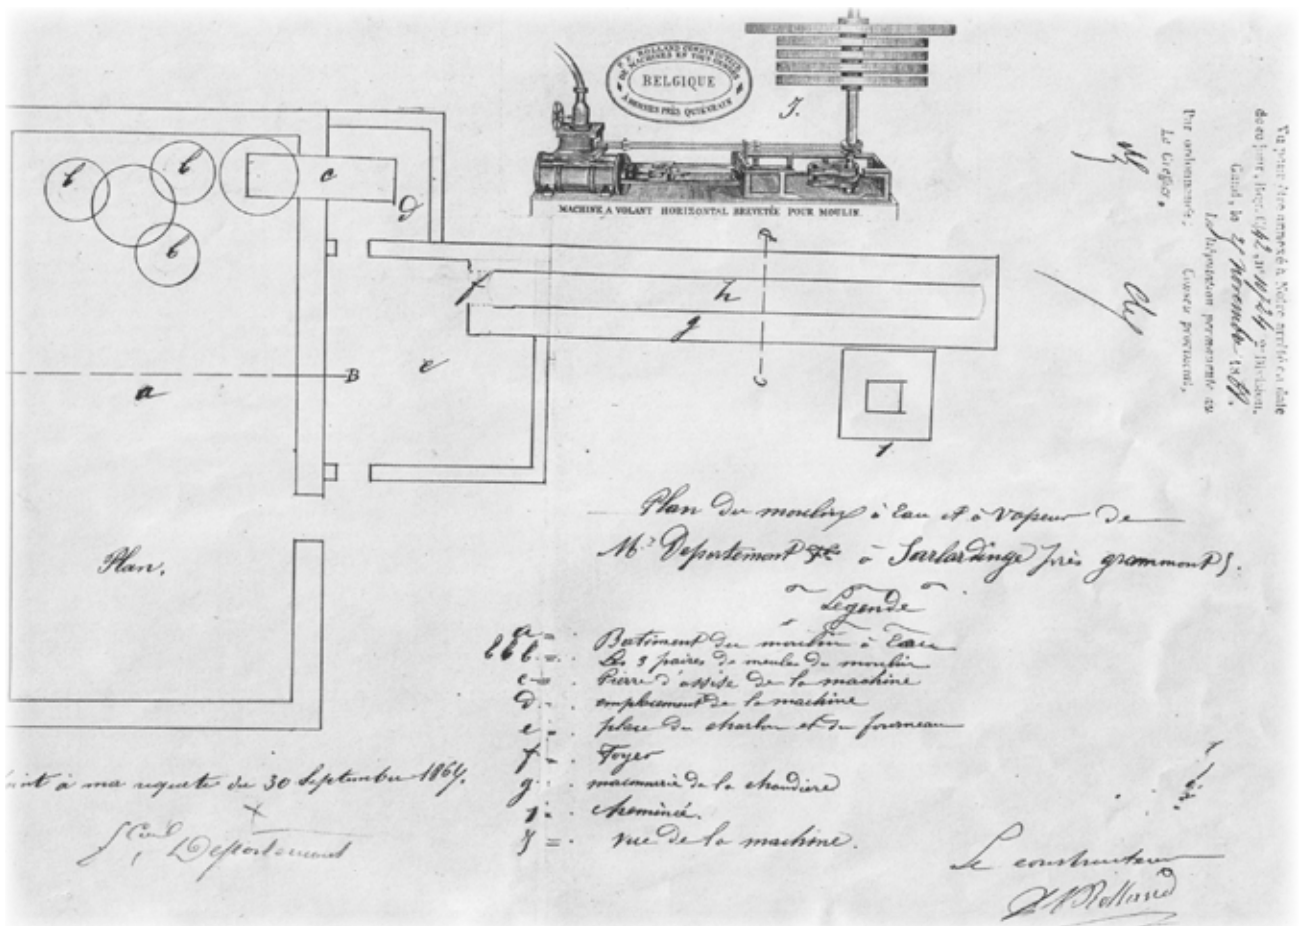 P. J. ROLLAND CONSTRUCTEUR
DE MACHINES EN TOUS GENRES
BELGIQUE
PRÈS QUIÉVRAIN
J.
MACHINE A VOLANT HORIZONTAL BREVETÉE POUR MOULIN.
b
b
b
c
d
f
h
g
e
a
B
1
Plan.
Plan du moulin à Eau et à Vapeur de
Mr. Departement à Sarlardinge près grammont.
Légende
a = Batiment du moulin à Eau
b b b = Les 3 paires de meules du moulin
c = Pierre d'assise de la machine
d emplacement de la machine
e place du charbon et du fourneau
f = Foyer
g maconnerie de la chaudiere
1 cheminée.
J = vue de la machine.
à ma requete du 30 Septembre 1864.
Departement
Le constructeur
Rolland
Vu pour être annexé à Notre arrêté en date
de ce jour, Division.
Gand, le novembre
La Députation permanente du
Conseil provincial,
Par ordonnance:
Le Greffier,